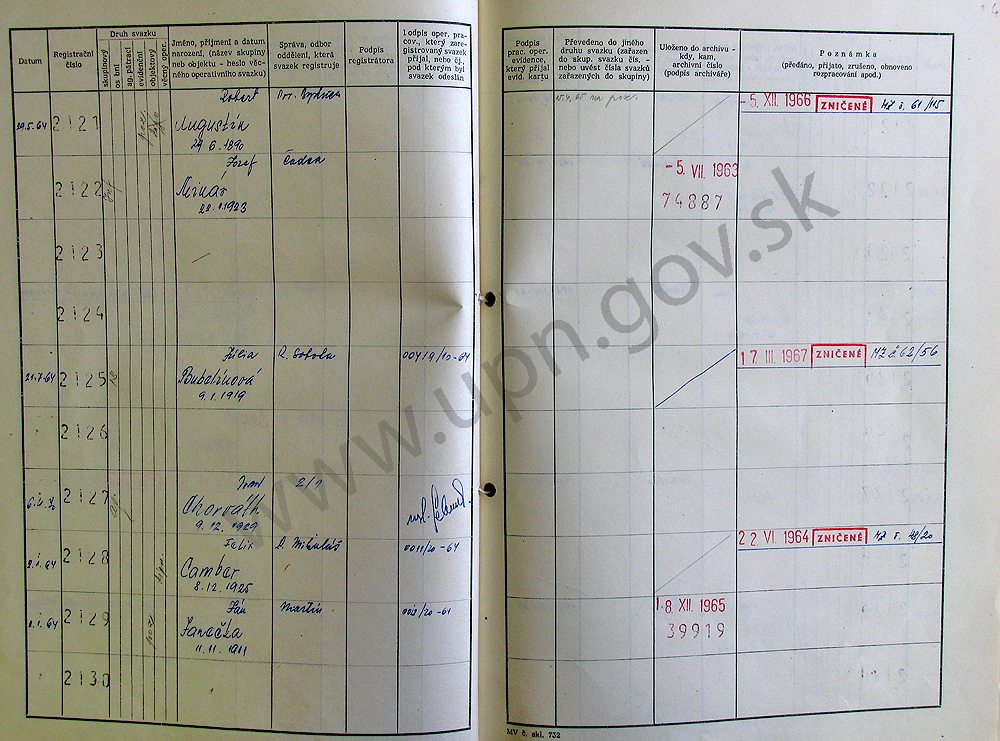 Datum
Registrační
číslo
Druh svazku
skupinový
os bní
ag. pátrací
evidenční
objektový
věcný oper.
Jméno, příjmení a datum
narození, (název skupiny
neb objektu - heslo věc-
ného operativního svazku)
Správa, odbor
oddělení, která
svazek registruje
Podpis
registrátora
Podpis oper. pra-
cov., který zare-
gistrovaný svazek
přijal, nebo čj.,
pod kterým byl
svazek odeslán
Podpis
prac. oper.
evidence,
který přijal
evid. kartu
Převedeno do jiného
druhu svazku (zařazen
do skup. svazku čís. -
nebo uvést čísla svazků
zařazených do skupiny)
Uloženo do archivu -
kdy, kam,
archivní číslo
(podpis archiváře)
Poznámka
(předáno, přijato, zrušeno, obnoveno
rozpracování apod.)
Robert
29.5.64 2121 Augustín
29 6. 1890
- 5. XII. 1966 ZNIČENÉ 61/115
Jozef Čadca
2122 Minár
1923
- 5. VII. 1963
74887
2123
2124
Júlia R. Sobota 00419/10-64
21.7.64 2125 Bubelínová
9.1.1919
17. III. 1967 ZNIČENÉ 62/56
2126
2127 Chorváth
9.12.1929
Felix L. Mikuláš 0011/20-64
2128 Camber
8.12.1925
22. VI. 1964 ZNIČENÉ
Ján Martin
2129 Janečka
11.11.1911
18. XII. 1965
39919
2130
MV č. skl. 732
www.upn.gov.sk